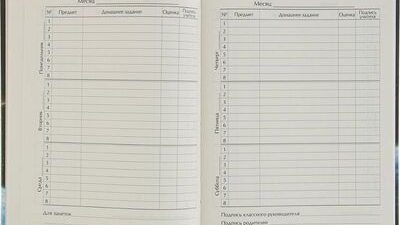 Месяц
№ Предмет Домашнее задание Оценка Подпись учителя
Понедельник
1
2
3
4
5
6
7
8
Вторник
1
2
3
4
5
6
7
8
Среда
1
2
3
4
5
6
7
8
Для заметок
Месяц
№ Предмет Домашнее задание Оценка Подпись учителя
Четверг
1
2
3
4
5
6
7
8
Пятница
1
2
3
4
5
6
7
8
Суббота
1
2
3
4
5
6
7
8
Подпись классного руководителя
Подпись родителей